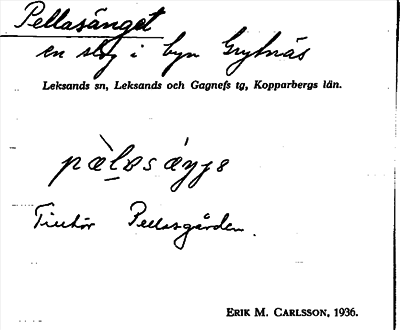 Pellasänget
en slog i byn Grytnäs
Leksands sn, Leksands och Gagnefs tg, Kopparbergs län.
Tillhör Pellasgården.
ERIK M. CARLSSON, 1936.